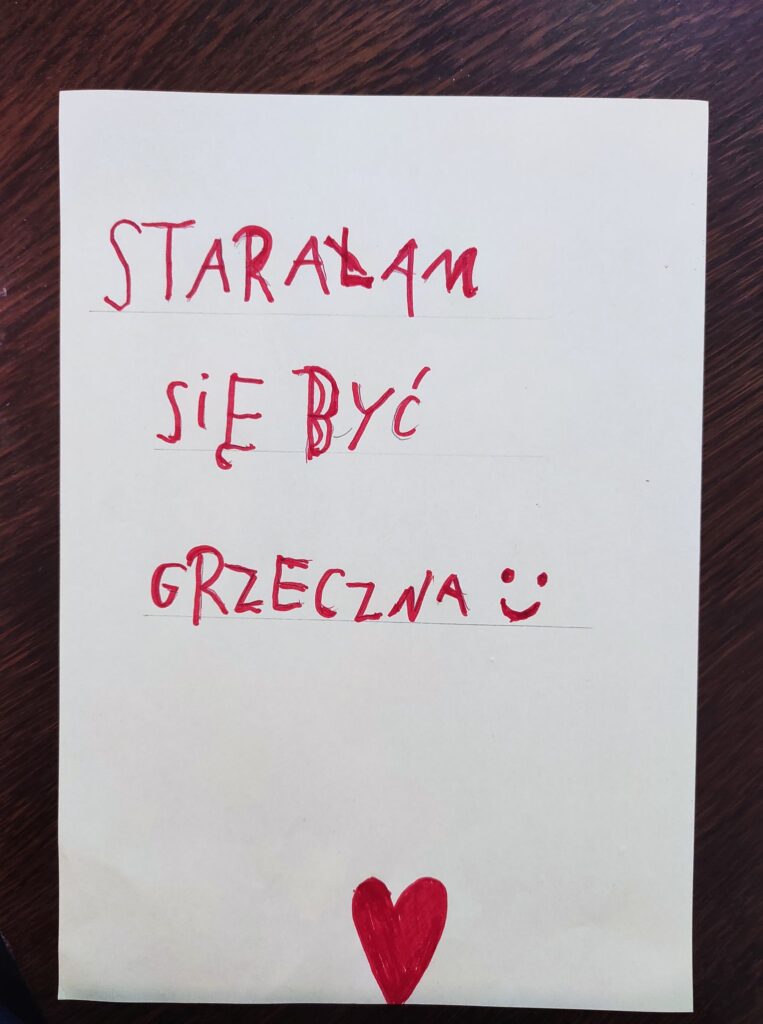 STARAŁAM
SIĘ BYĆ
GRZECZNA